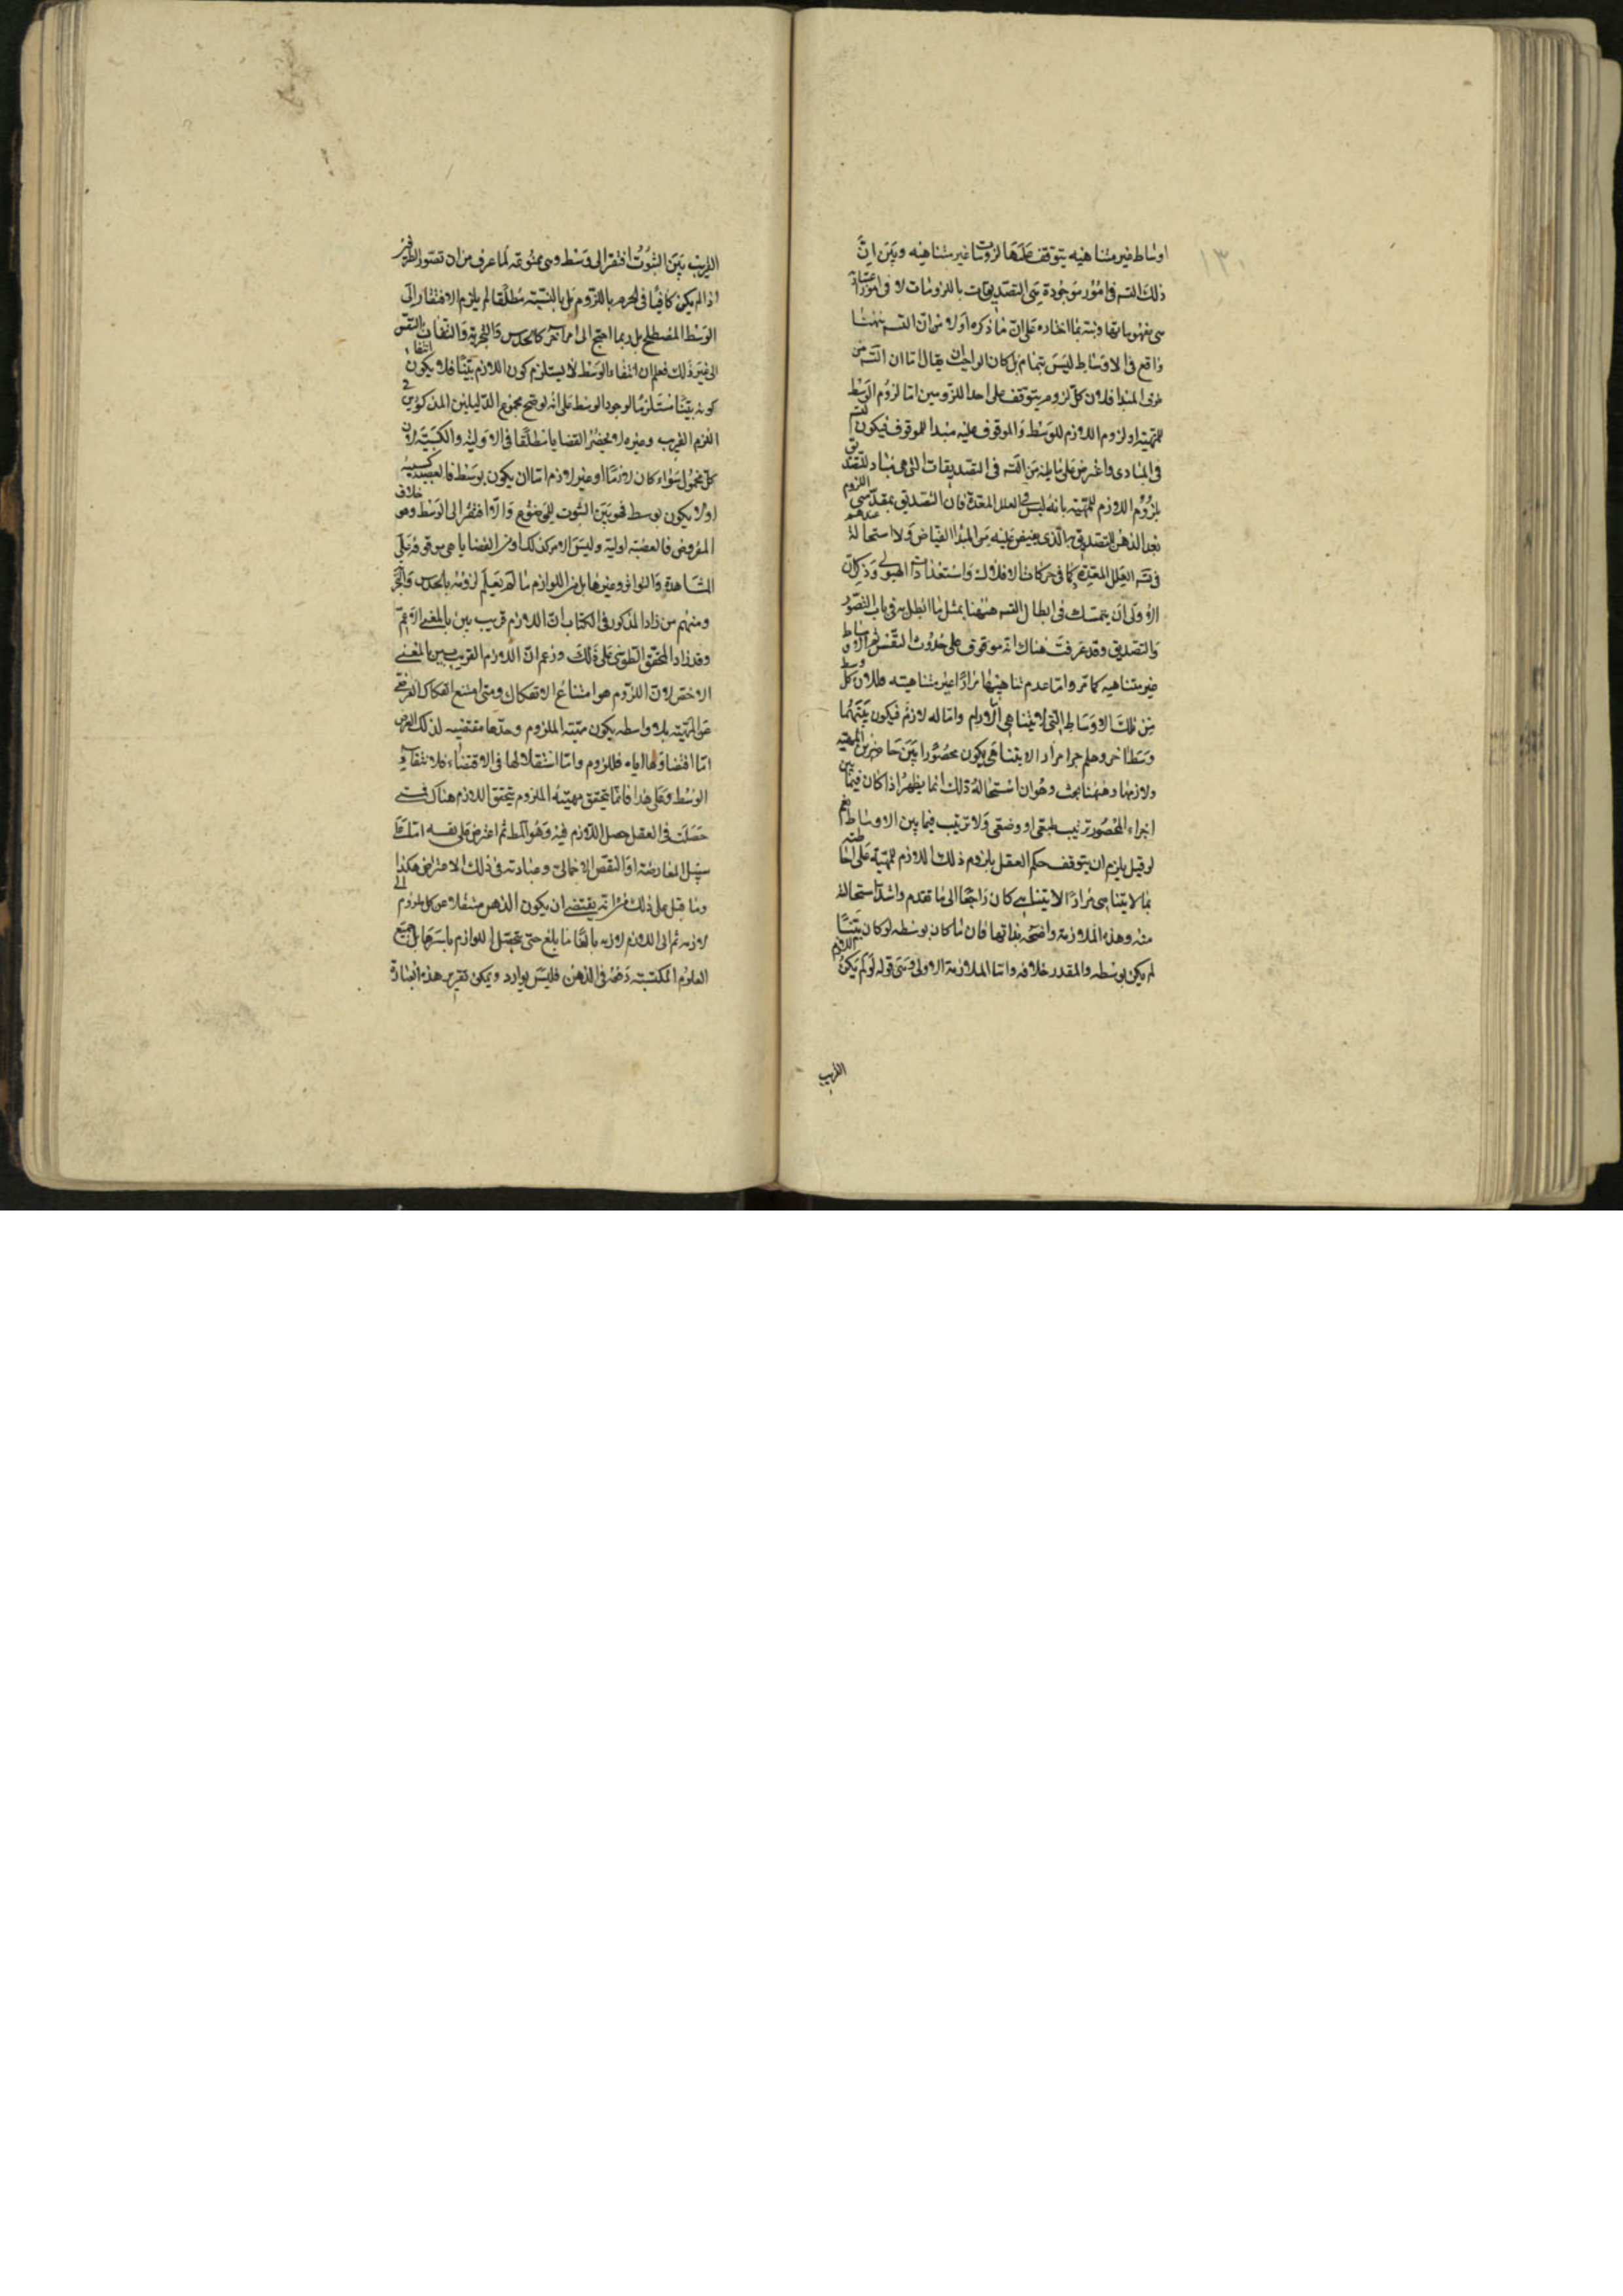 ١٣٠
اوساط غير متناهيه يتوقف عليها لزومات غير متناهيه وبين ان
ذلك التسـ فى امور موجودة هى التصديقات باللزومات لا فى امور اعتبارية
هى مفهوماتها ونبه بما اختاره على ان ما ذكره اولا من ان التسـ ههنا
واقع فى الاوساط ليس بتمام بل كان الواجب ان يقال اما ان التسـ من
طرف المبدا فلان كل لزوم يتوقف على احد اللزومين اما لزوم الوسط
للمهية او لزوم اللازم للوسط والموقوف عليه مبدا للموقوف فيكون التسـ
فى المبادى واعترض على ما بينه من التسـ فى التصديقات التى هى مباد للتصديق
بلزوم اللازم للمهية بانه ليس فى العلل المعدة فان التصديق بمقدمتى اللزوم
يعد الذهن للتصديق الذى يفيض عليه من المبدا الفياض ولا استحالة عندهم
فى تسـ العلل المعدة كما فى حركات الافلاك واستعدادات الهيولى وذكر ان
الاولى ان يتمسك فى ابطال التسـ ههنا بمثل ما ابطل به فى باب التصور
والتصديق وقد عرفت هناك انه موقوف على حدوث النفس ثم الاوساط
غير متناهيه كما مر واما عدم تناهيها مرارا غير متناهيه فلان كل وسط
من تلك الاوساط التى لا يتناهى الا ولم واما له لازم فيكون بينهما
وسط اخر وهلم جرا مرارا لا يتناهى يكون محصورا بين حاضرين المهيه
ولازمها وههنا بحث وهو ان استحالة ذلك انما يظهر اذا كان فيما بين
اجزاء المحصور ترتيب طبعى او وضعى ولا ترتيب فيما بين الاوساط نعم
لو قيل يلزم ان يتوقف حكم العقل بلزوم ذلك اللازم للمهية على احاطته
بما لا يتناهى مرارا لا يتناهى كان راجعا الى ما تقدم واشد استحالة
منه وهذه الملازمة واضحة بذاتها فان ما كان بوسطه لو كان بينا
لم يكن بوسطه والمقدر خلافه واما الملازمة الاولى وهى قوله لو لم يكن اللازم
القريب
القريب بين الثبوت افتقر الى وسط وهى ممنوعة لما عرف من ان تصور الطرفين
اذا لم يكن كافيا فى الجزم باللزوم بل بالنسبة مطلقا لم يلزم الافتقار الى
الوسط المصطلح بل ربما احتيج الى امر اخر كالحدس والتجربة والتفات النفس
الى غير ذلك فعلم ان انتفاء الوسط لا يستلزم كون اللازم بينا فلا يكون انتفاء
كونه بينا مستلزما لوجود الوسط على انه لو صح مجموع الدليلين المذكورين فى
اللازم القريب وغيره لانحصر القضايا مطلقا فى الاولية والكسبية لان
كل محمول سواء كان لازما او غير لازم اما ان يكون بوسط فالقضية كسبية
او لا يكون بوسط فهو بين الثبوت للموضوع والا افتقر الى الوسط وهو خلاف
المفروض فالقضية اولية وليس الامر كذلك اذ من القضايا ما هى موقوفة على
المشاهدة والتواتر وغيرها بل من اللوازم ما لم يعلم لزومه بالحدس والتجربة
ومنهم من زاد المذكور فى الكتاب ان اللازم قريب بين بالمعنى الاعم
وقد زاد المحقق الطوسى على ذلك وزعم ان اللازم القريب بين بالمعنى
الاخص لان اللزوم هو امتناع الانفكاك ومتى امتنع انفكاك العرضى
عن المهية بلا واسطه يكون مهيته الملزوم وحدها مقتضيه لذلك العرض
اما اقتضاؤها اياه فللزوم واما استقلالها فى الاقتضاء فلانتفاء
الوسط وعلى هذا فاينما يتحقق مهيته الملزوم يتحقق اللازم هناك فمتى
حصلت فى العقل حصل اللازم فيه وهو المط ثم اعترض على نفسه اما على
سبيل المعارضة او النقض الاجمالى وعبارته فى ذلك الاعتراض هكذا
وما قيل على ذلك من انه يقتضى ان يكون الذهن منتقلا من كل ملزوم الى
لازمه ثم الى اللازم لازمه بالغا ما بلغ حتى يحصل اللوازم باسرها بل جميع
العلوم المكتسبة دفعة فى الذهن فليس بوارد ويمكن تقرير هذه العبارة